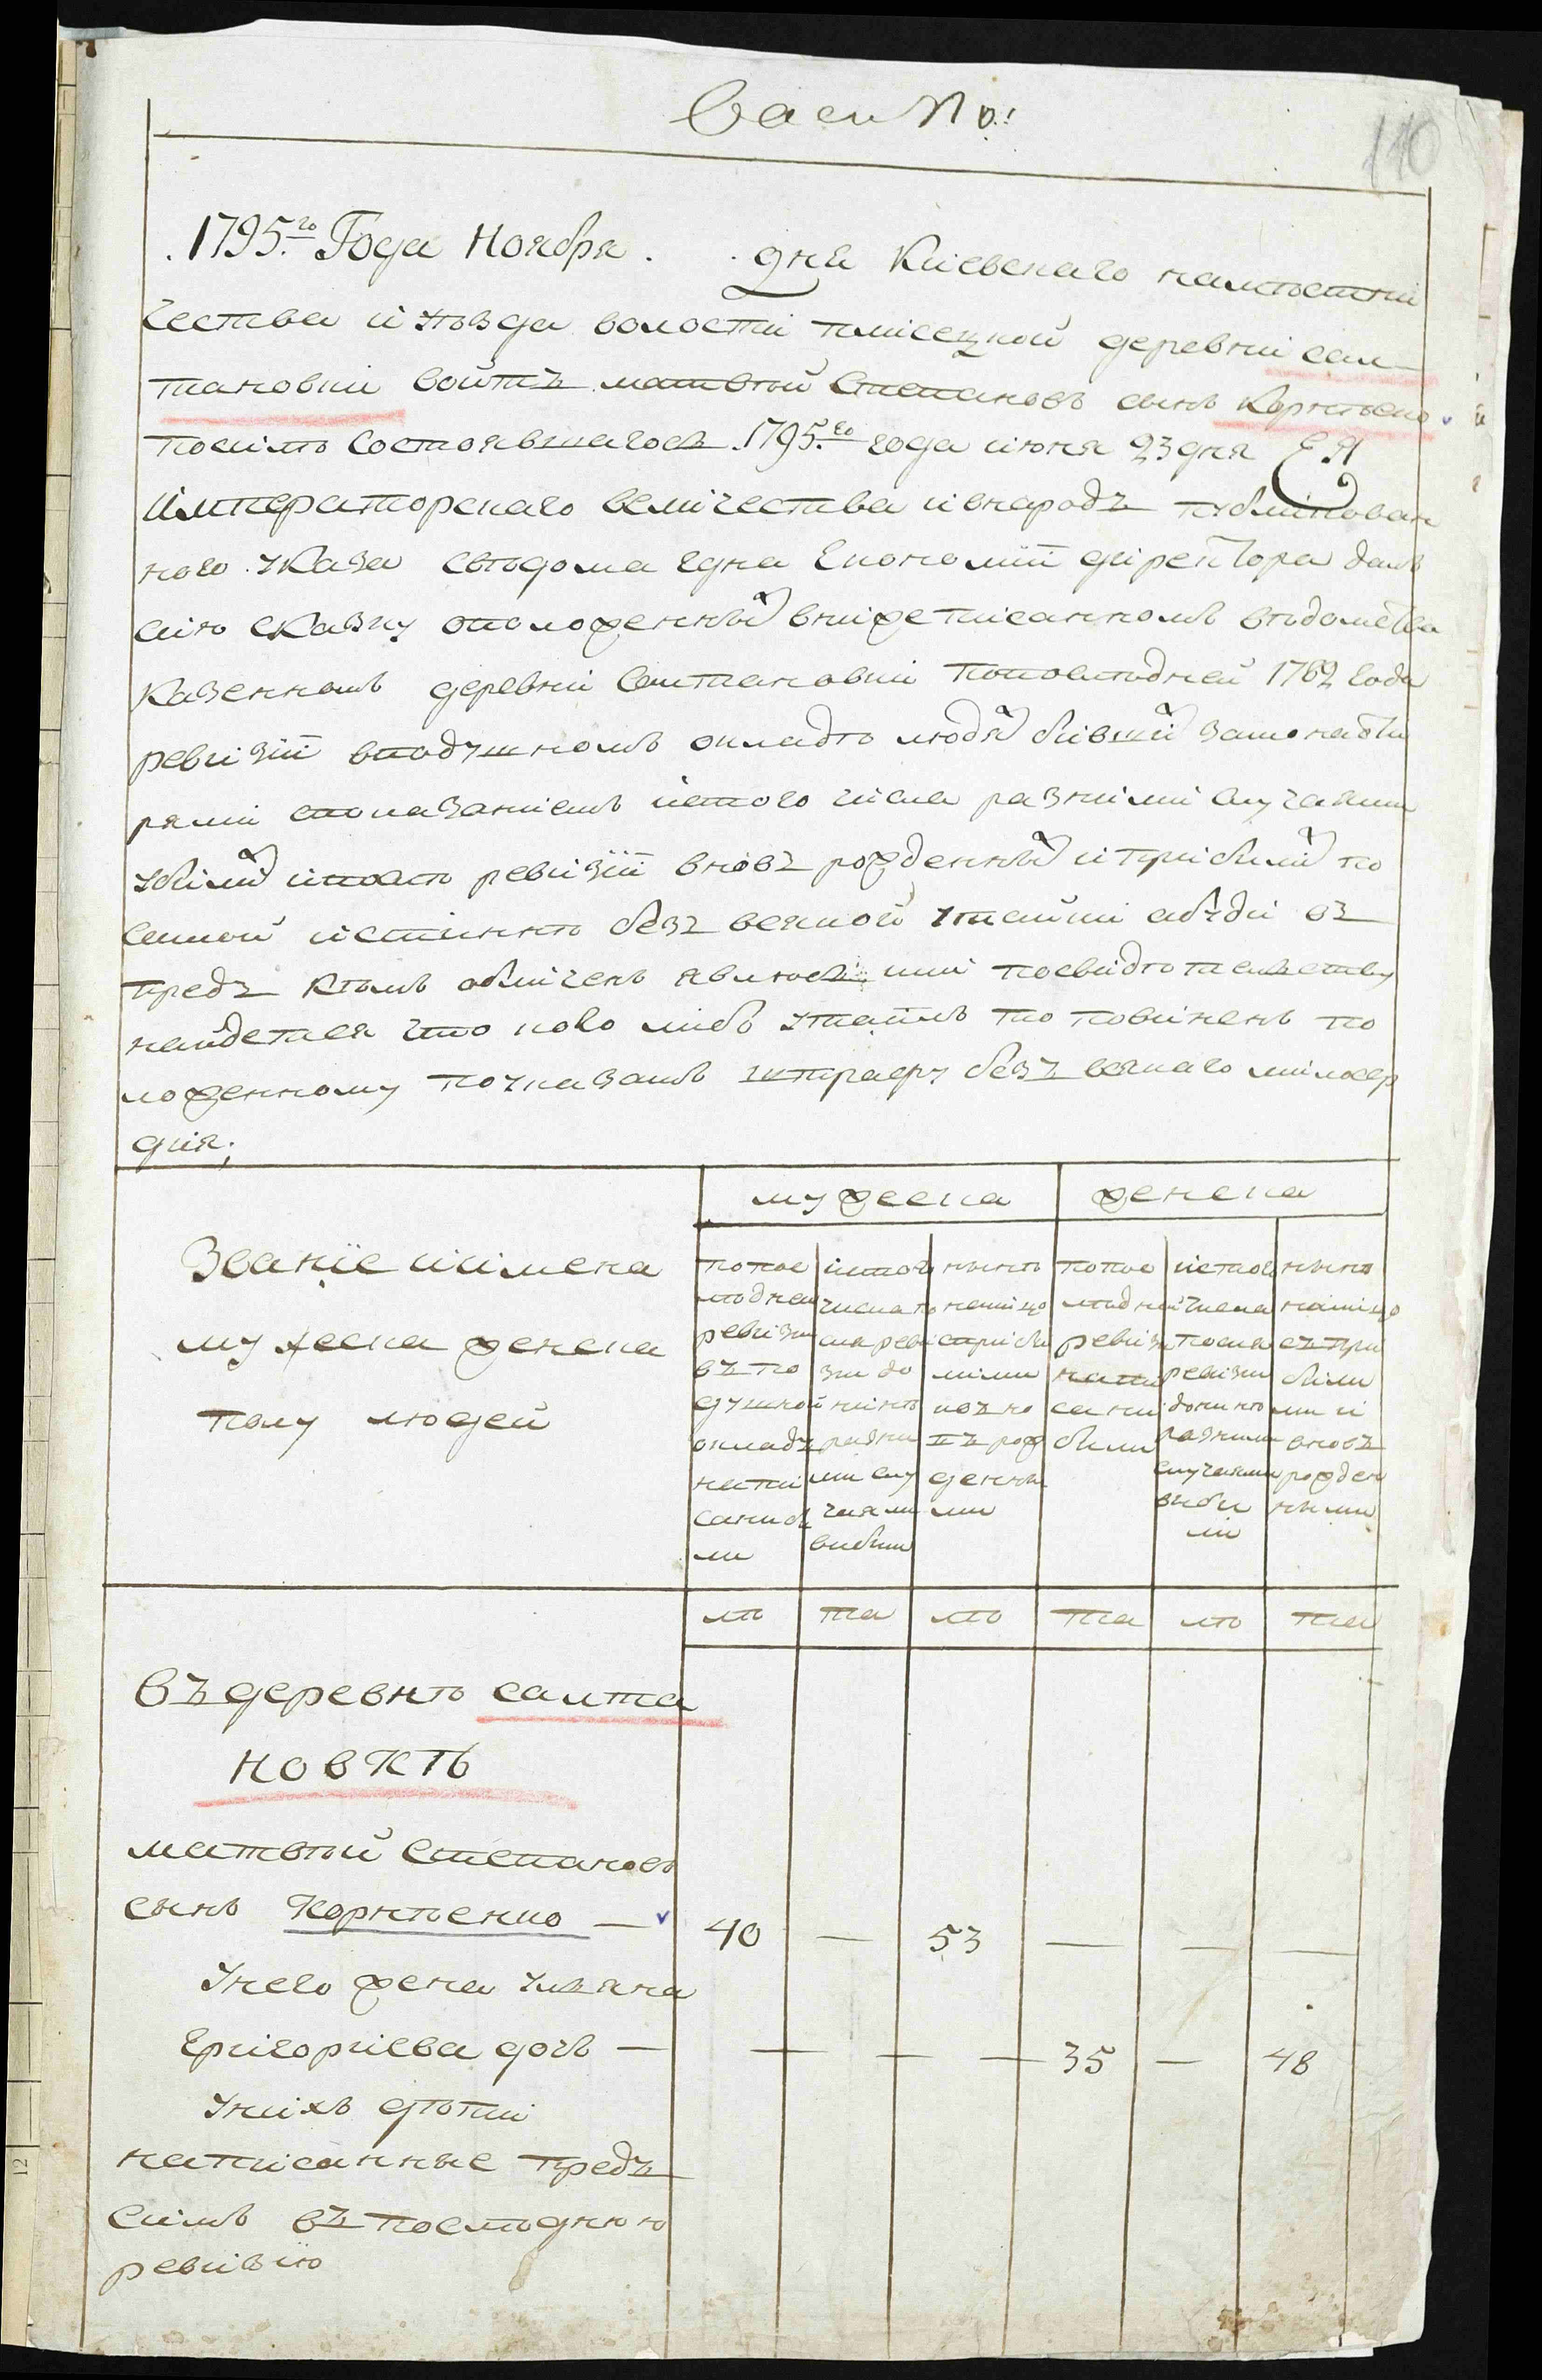 110
1795го Года Ноября . . дня Киевскаго намѣстни
чества и уѣзда волости плисецкой деревни сал
тановки войтъ матвѣй Степановъ сынъ Корнѣенко
по силѣ состоявшагось 1795го года июня 23 дня ЕЯ
Императорскаго величества и внародъ публикован
ного указа свѣдома гдна Економїи директора далъ
сию сказку о положенных внижеписанномъ вѣдомства
казенномъ деревни Салтановки по последней 1782 года
ревизїи вподушномъ окладѣ людях бивших
рями споказаниемъ истого числа разними случаями
убилих и после ревизїи вновъ рожденных и прибилих по
самой истиннѣ безъ всякой утайки а буди в
предь кѣмъ обличенъ явлюсь или посвидѣтелству
найдется что кого либъ утаилъ то повиненъ по
ложенному по указамъ штрафу безъ всякаго милосер
дия;
Званїе и имена
мужеска женска
полу людей
мужеска
женска
по пос
лѣдней
ревизии
въ по
душной
окладъ
напи
сани бы
ли
истого
числа по
сля реви
зии до
нинѣ
разни
ми слу
чаями
вибили
нынѣ
налицо
сприби
лими
и въно
въ рож
денны
ми
по пос
лѣдней
ревизи
напи
сани
били
истого
числа
посля
ревизии
до нинѣ
разними
случаями
виби
ли
нынѣ
налицо
съ при
били
ми и
вновъ
рожден
ными
лѣ та лѣ та лѣ та
Въ деревнѣ салта
новкѣ
матвѣй Степановъ
сынъ Корнѣенко — 40 — 53 — — —
У него жена Ульяна
Григориева дочь — — — — 35 — 48
У нихъ дѣти
написанные предъ
симъ въ послѣднюю
ревизїю
12